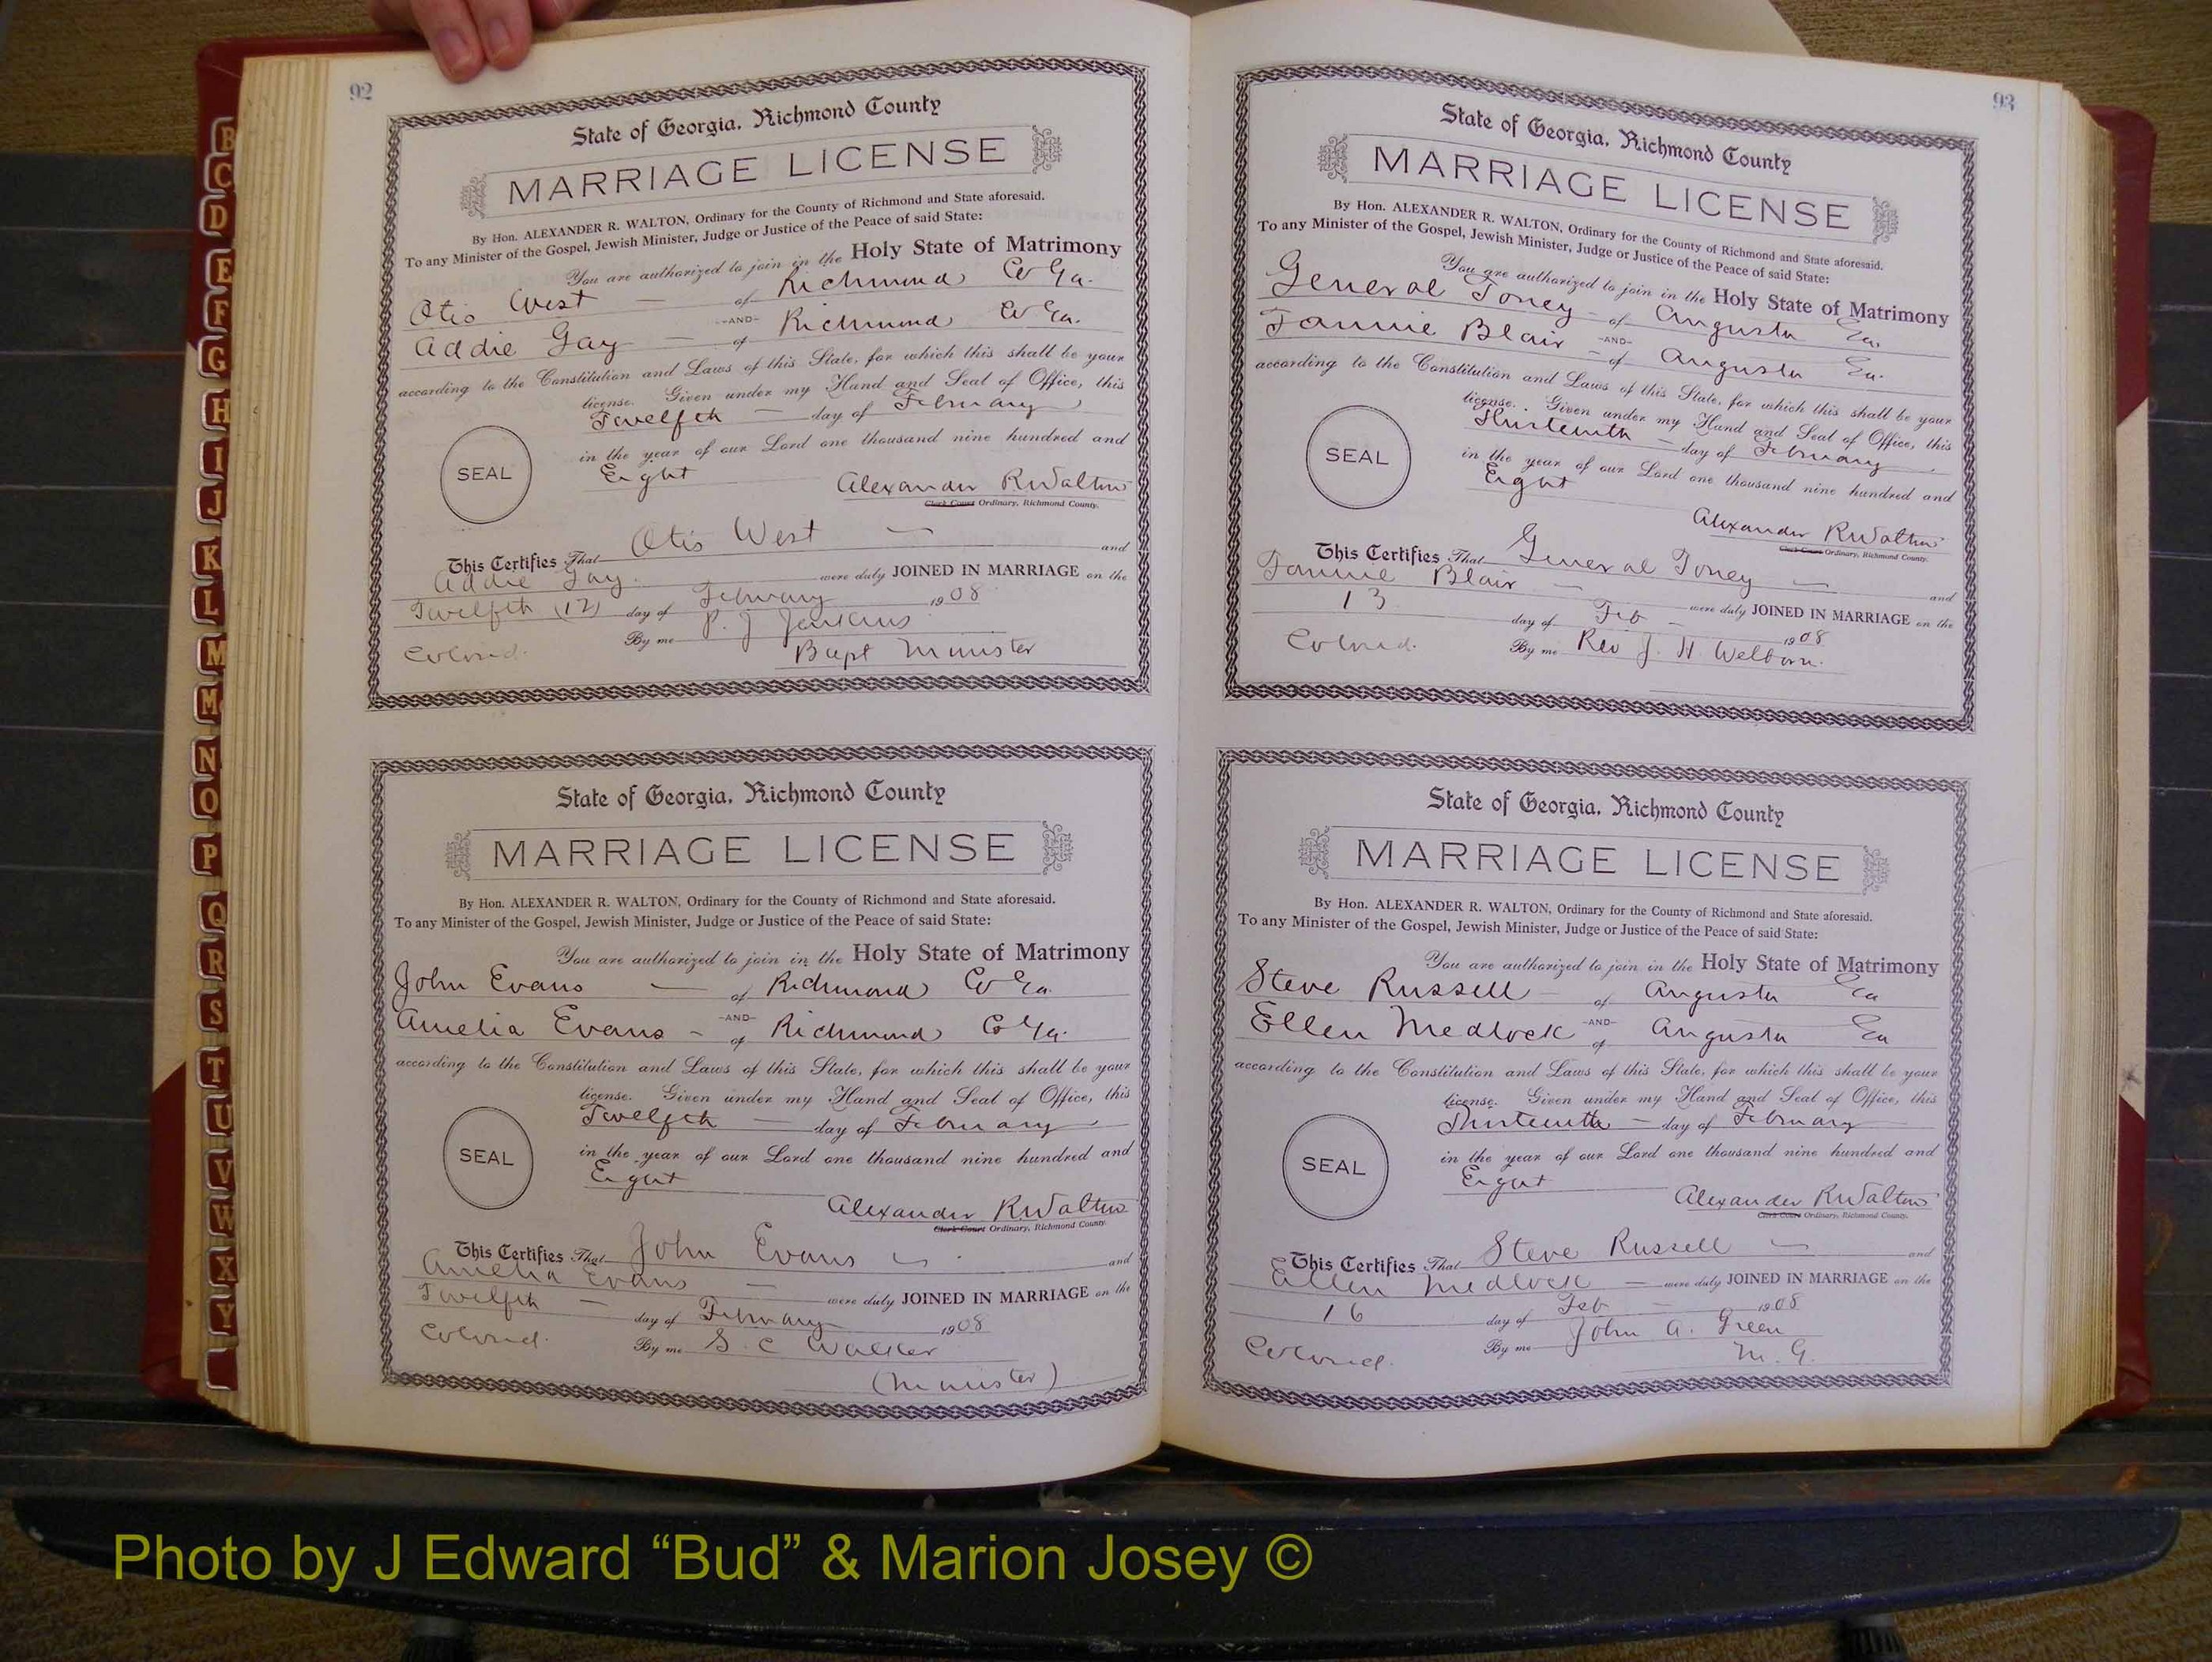 92
State of Georgia, Richmond County
MARRIAGE LICENSE
By Hon. ALEXANDER R. WALTON, Ordinary for the County of Richmond and State aforesaid.
To any Minister of the Gospel, Jewish Minister, Judge or Justice of the Peace of said State:
You are authorized to join in the Holy State of Matrimony
Otis West — of Richmond Co Ga.
-AND-
Addie Gay — of Richmond Co Ga.
according to the Constitution and Laws of this State, for which this shall be your
license. Given under my Hand and Seal of Office, this
Twelfth — day of February
in the year of our Lord one thousand nine hundred and
Eight
SEAL
Alexander R Walton
Clerk Court Ordinary, Richmond County.
This Certifies That Otis West — and
Addie Gay. were duly JOINED IN MARRIAGE on the
Twelfth (12) day of February 1908
By me P. J Jenkins
Colored. Bapt Minister
State of Georgia, Richmond County
MARRIAGE LICENSE
By Hon. ALEXANDER R. WALTON, Ordinary for the County of Richmond and State aforesaid.
To any Minister of the Gospel, Jewish Minister, Judge or Justice of the Peace of said State:
You are authorized to join in the Holy State of Matrimony
John Evans — of Richmond Co Ga.
-AND-
Amelia Evans - of Richmond Co Ga.
according to the Constitution and Laws of this State, for which this shall be your
license. Given under my Hand and Seal of Office, this
Twelfth — day of February
in the year of our Lord one thousand nine hundred and
Eight
SEAL
Alexander R Walton
Clerk Court Ordinary, Richmond County.
This Certifies That John Evans — and
Amelia Evans — were duly JOINED IN MARRIAGE on the
Twelfth — day of February 1908
Colored. By me S. C Walker
(Minister)
93
State of Georgia, Richmond County
MARRIAGE LICENSE
By Hon. ALEXANDER R. WALTON, Ordinary for the County of Richmond and State aforesaid.
To any Minister of the Gospel, Jewish Minister, Judge or Justice of the Peace of said State:
You are authorized to join in the Holy State of Matrimony
General Toney - of Augusta Ga.
-AND-
Fannie Blair - of Augusta Ga.
according to the Constitution and Laws of this State, for which this shall be your
license. Given under my Hand and Seal of Office, this
Thirteenth — day of February
in the year of our Lord one thousand nine hundred and
Eight
SEAL
Alexander R Walton
Clerk Court Ordinary, Richmond County.
This Certifies That General Toney — and
Fannie Blair — were duly JOINED IN MARRIAGE on the
13 day of Feb - 1908
Colored. By me Rev J. H Welborn.
State of Georgia, Richmond County
MARRIAGE LICENSE
By Hon. ALEXANDER R. WALTON, Ordinary for the County of Richmond and State aforesaid.
To any Minister of the Gospel, Jewish Minister, Judge or Justice of the Peace of said State:
You are authorized to join in the Holy State of Matrimony
Steve Russell - of Augusta Ga
-AND-
Ellen Medlock of Augusta Ga
according to the Constitution and Laws of this State, for which this shall be your
license. Given under my Hand and Seal of Office, this
Thirteenth — day of February
in the year of our Lord one thousand nine hundred and
Eight
SEAL
Alexander R Walton
Clerk Court Ordinary, Richmond County.
This Certifies That Steve Russell — and
Ellen Medlock — were duly JOINED IN MARRIAGE on the
16 day of Feb - 1908
Colored. By me John A. Green
M. G.
B
C
D
E
F
G
H
I
J
K
L
M
Mc
N
O
P
Q
R
S
T
U
V
W
X
Y
Photo by J Edward “Bud” & Marion Josey ©